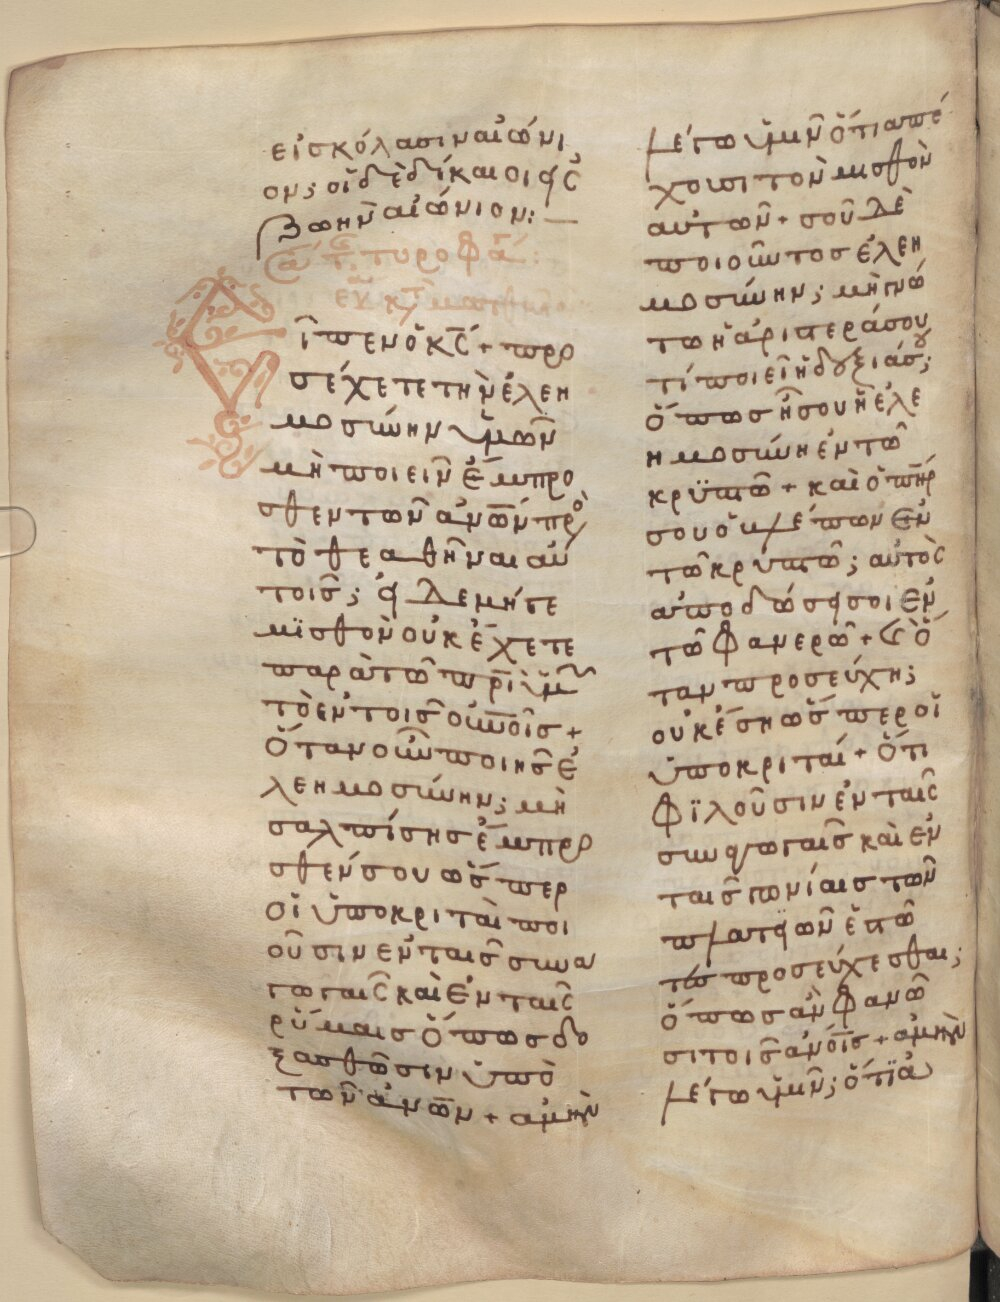 εἰσ κόλασιν αἰώνι
ον; οἱ δὲ δίκαιοι εἰς
ζωὴν αἰώνιον:—
Σα τ̅ τυροφα:
εκ κτ ματθαιο
Εἶπεν ὁ κ̅ς̅ + προ
σέχετε τὴν ἐλεη
μοσύνην ὑμῶν
μὴ ποιεῖν ἔμπρο
σθεν τῶν ἀν̅ων πρὸ
τὸ θεαθῆναι αὐ
τοῖς; εἰ δὲ μήγε
μϊσθὸν οὐκ ἔχετε
παρὰ τῶ π̅ρι ὑμῶ
τὸ ἐν τοῖς οὐ̅νοῖς +
Ὅταν οὖν ποιῆς ἐ
λεημοσύνην; μὴ
σαλπίσης ἔμπρο
σθέν σου ὥσπερ
οἱ ὑποκριταὶ ποι
οῦσιν ἐν ταῖς συνα
γωγαῖς καὶ ἐν ταῖς
ρύμαις Ὅπως δο
ξασθῶσιν ὑπὸ
τῶν ἀν̅ων + αμὴν
λέγω ὑμῖν ὅτι απέ
χουσι τὸν μισθὸν
αὐτῶν + σοῦ δὲ
ποιοῦντος ἐλεη
μοσύνην; μὴ γνώ
τω ἡ ἀριστερά σου
τί ποιεῖ ἡ δεξιά σου;
ὅπως ἦ σου ἡ ἐλε
ημοσύνη ἐν τῶ
κρϋπτῶ + καὶ ὁ π̅ηρ
σου ὁ βλέπων ἐν
τῶ κρυπτῶ; αὐτὸς
ἀποδώσει σοι ἐν
τῶ φανερῶ + Καὶ ὅ
ταν προσεύχη;
οὐκ έση ὥσπερ οἱ
ὑποκριταί + Ὅτι
φϊλοῦσιν ἐν ταῖς
συναγωγαῖς καὶ ἐν
ταῖς γωνίαις τῶν
πλατειῶν ἑστῶ
τες προσεύχεσθαι;
ὅπως ἂν φανῶ
σι τοῖς ἀν̅οις + αμὴν
λέγω ὑμῖν; ὅτϊ ἀ